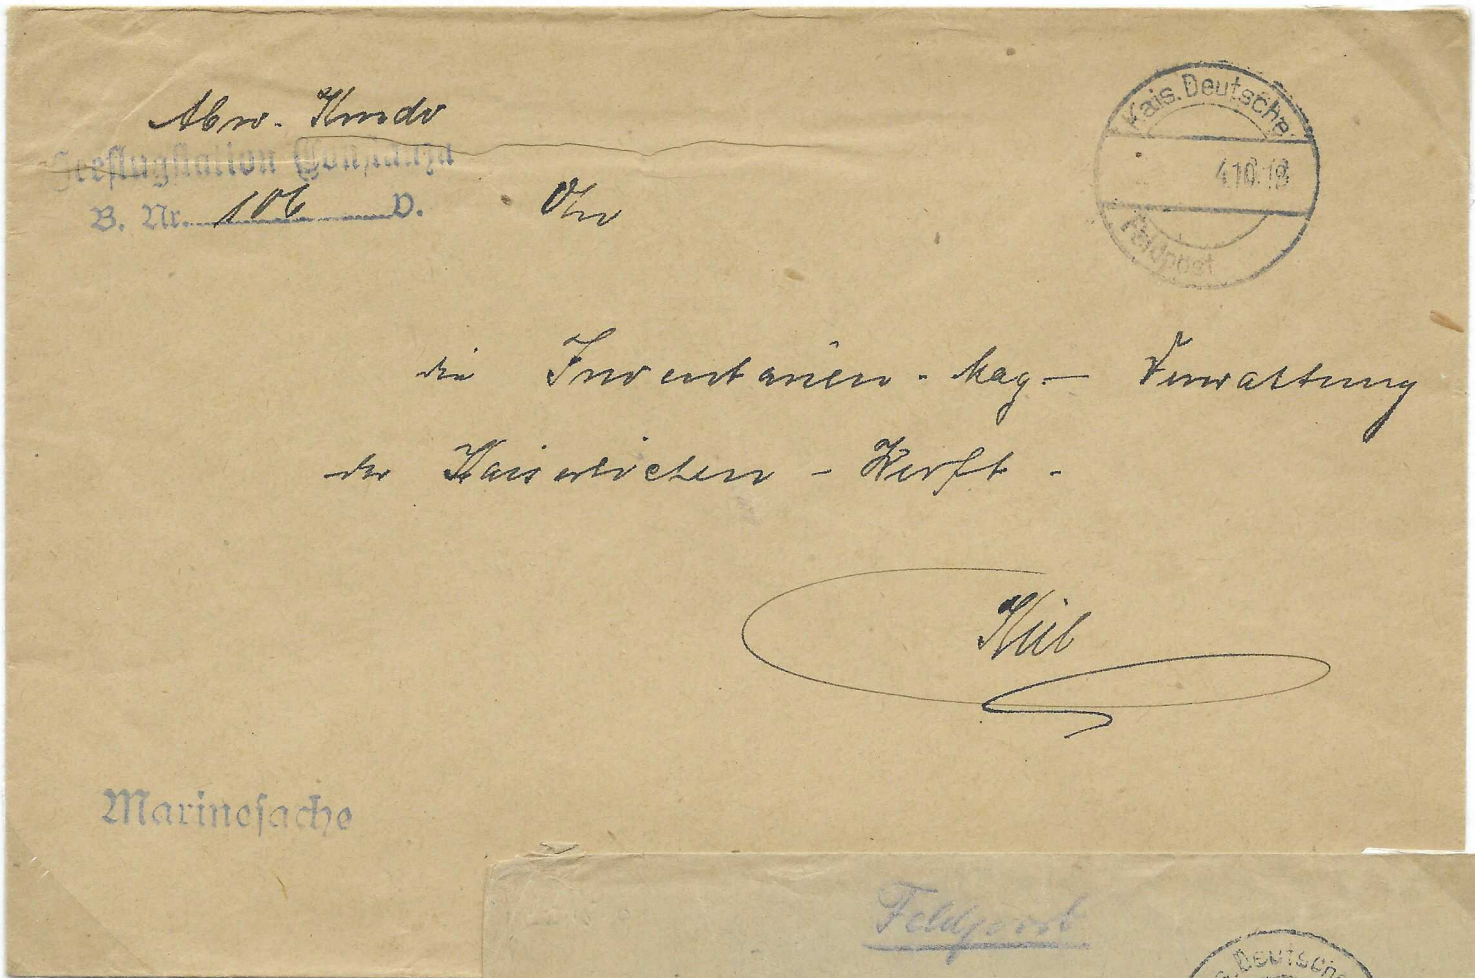 Abw. Kmdo
Seeflugstation Constanza
B. Nr. 106 V.
Kais. Deutsche
4.10.18
Feldpost
An
die Inventarien-Mag- Verwaltung
der Kaiserlichen-Werft-
Kiel
Marinesache
Feldpost
s. Deutsche